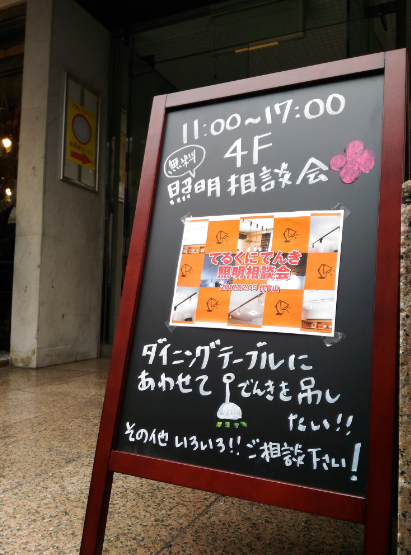 11:00~17:00
4F
無料
照明相談会
てるくにでんき
照明相談会
ダイニングテーブルに
あわせて でんきを吊し
たい!!
その他いろいろ!!ご相談下さい!